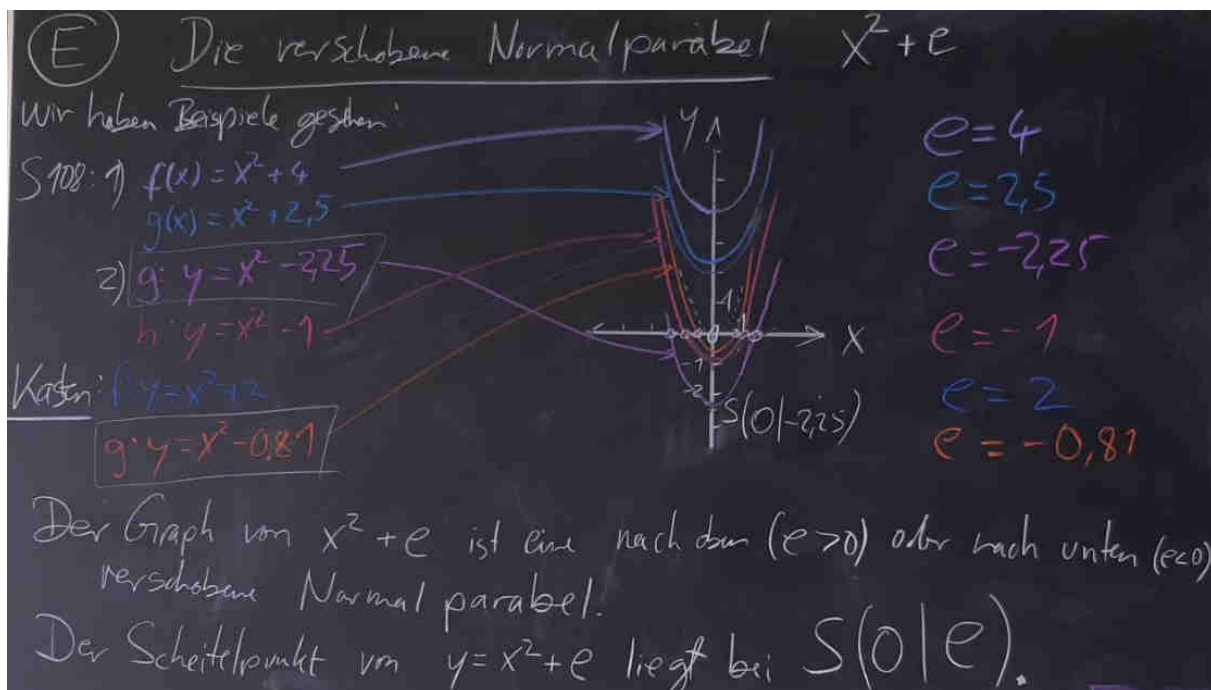 E Die verschobene Normalparabel x² + e
Wir haben Beispiele gesehen:
S108: 1) f(x) = x² + 4
g(x) = x² + 2,5
2) g: y = x² - 2,25
h: y = x² - 1
Kasten: f: y = x² + 2
g: y = x² - 0,81
y
1
1
0
x
-1
-2
S(0|-2,25)
e = 4
e = 2,5
e = -2,25
e = -1
e = 2
e = -0,81
Der Graph von x² + e ist eine nach oben (e > 0) oder nach unten (e<0)
verschobene Normalparabel.
Der Scheitelpunkt von y = x² + e liegt bei S(0|e).